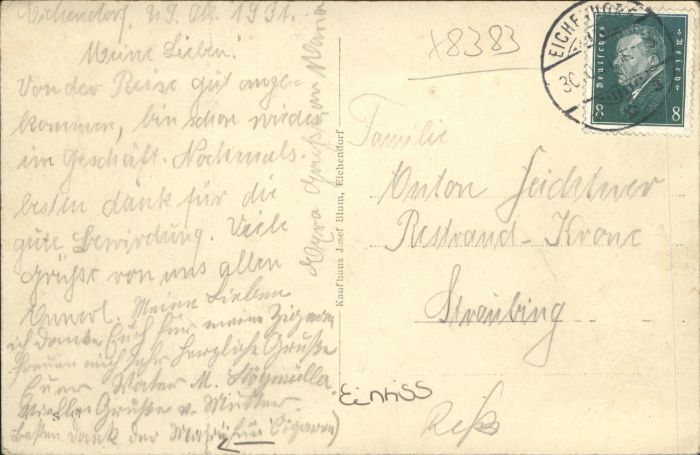 Eichendorf, 29. Okt. 1931.
Meine Lieben!
Von der Reise gut ange-
kommen, bin schon wieder
im Geschäft. Nochmals
besten dank für die
gute bewirdung. Viele
Grüße von uns allen
Annerl. Meine Lieben
ich danke Euch für meine Zigaren
freuen mich sehr herzliche Grüße
Euer Vater M. Stögmüller
Viele Grüße v. Mutter.
besten dank der Cigaren)
Extra Gruß von Mama
Kaufhaus Josef Blum, Eichendorf
x8383
EICHENDORF
30.
Deutsches Reich
8 8
Familie
Anton Feichtner
Restrand-Krone
Straubing
Einriss
Reiss